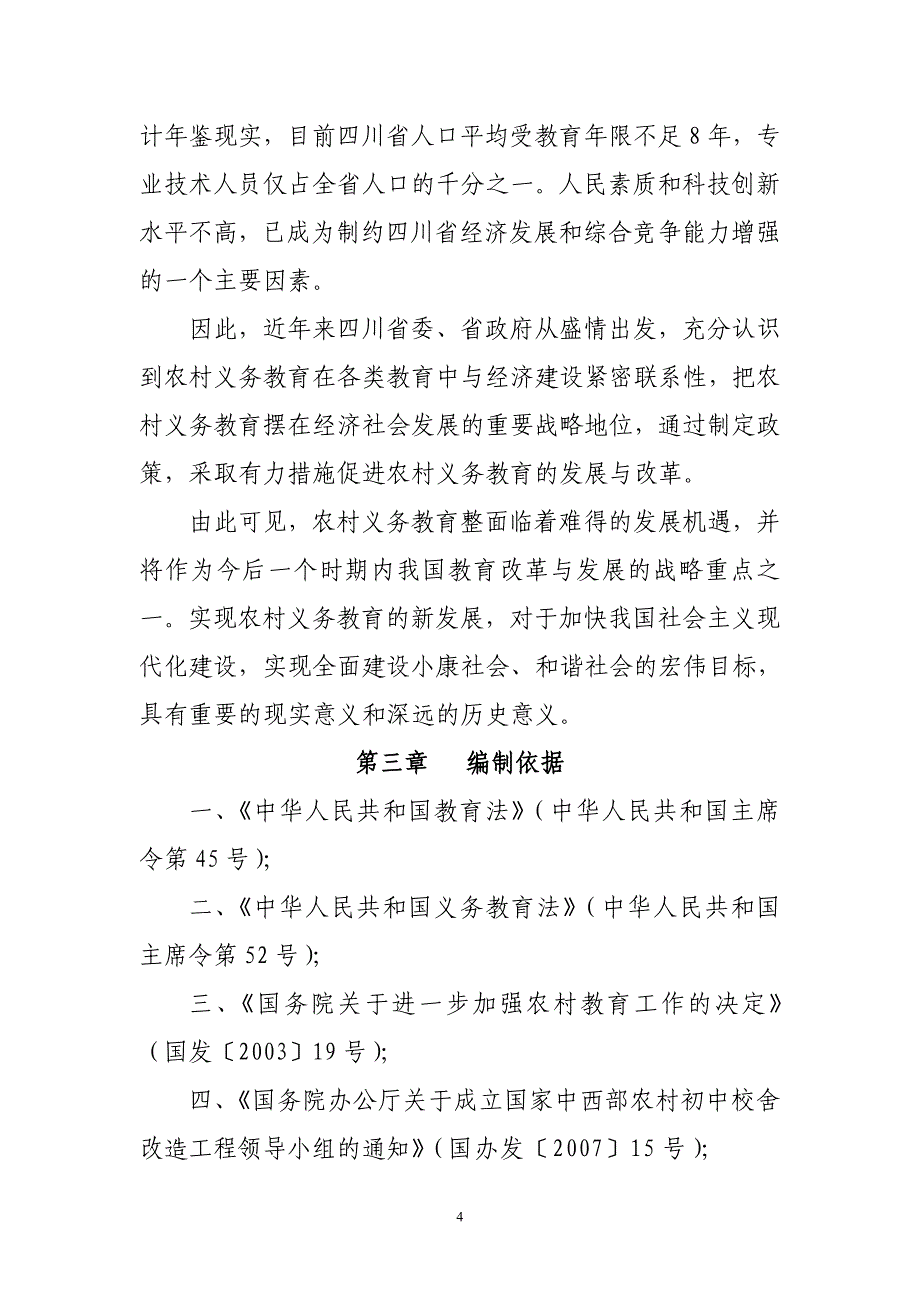 计年鉴现实，目前四川省人口平均受教育年限不足 8 年，专
业技术人员仅占全省人口的千分之一。人民素质和科技创新
水平不高，已成为制约四川省经济发展和综合竞争能力增强
的一个主要因素。
因此，近年来四川省委、省政府从盛情出发，充分认识
到农村义务教育在各类教育中与经济建设紧密联系性，把农
村义务教育摆在经济社会发展的重要战略地位，通过制定政
策，采取有力措施促进农村义务教育的发展与改革。
由此可见，农村义务教育整面临着难得的发展机遇，并
将作为今后一个时期内我国教育改革与发展的战略重点之
一。实现农村义务教育的新发展，对于加快我国社会主义现
代化建设，实现全面建设小康社会、和谐社会的宏伟目标，
具有重要的现实意义和深远的历史意义。
第三章 编制依据
一、《中华人民共和国教育法》（中华人民共和国主席
令第 45 号）；
二、《中华人民共和国义务教育法》（中华人民共和国
主席令第 52 号）；
三、《国务院关于进一步加强农村教育工作的决定》
（国发〔2003〕19 号）；
四、《国务院办公厅关于成立国家中西部农村初中校舍
改造工程领导小组的通知》（国办发〔2007〕15 号）；
4